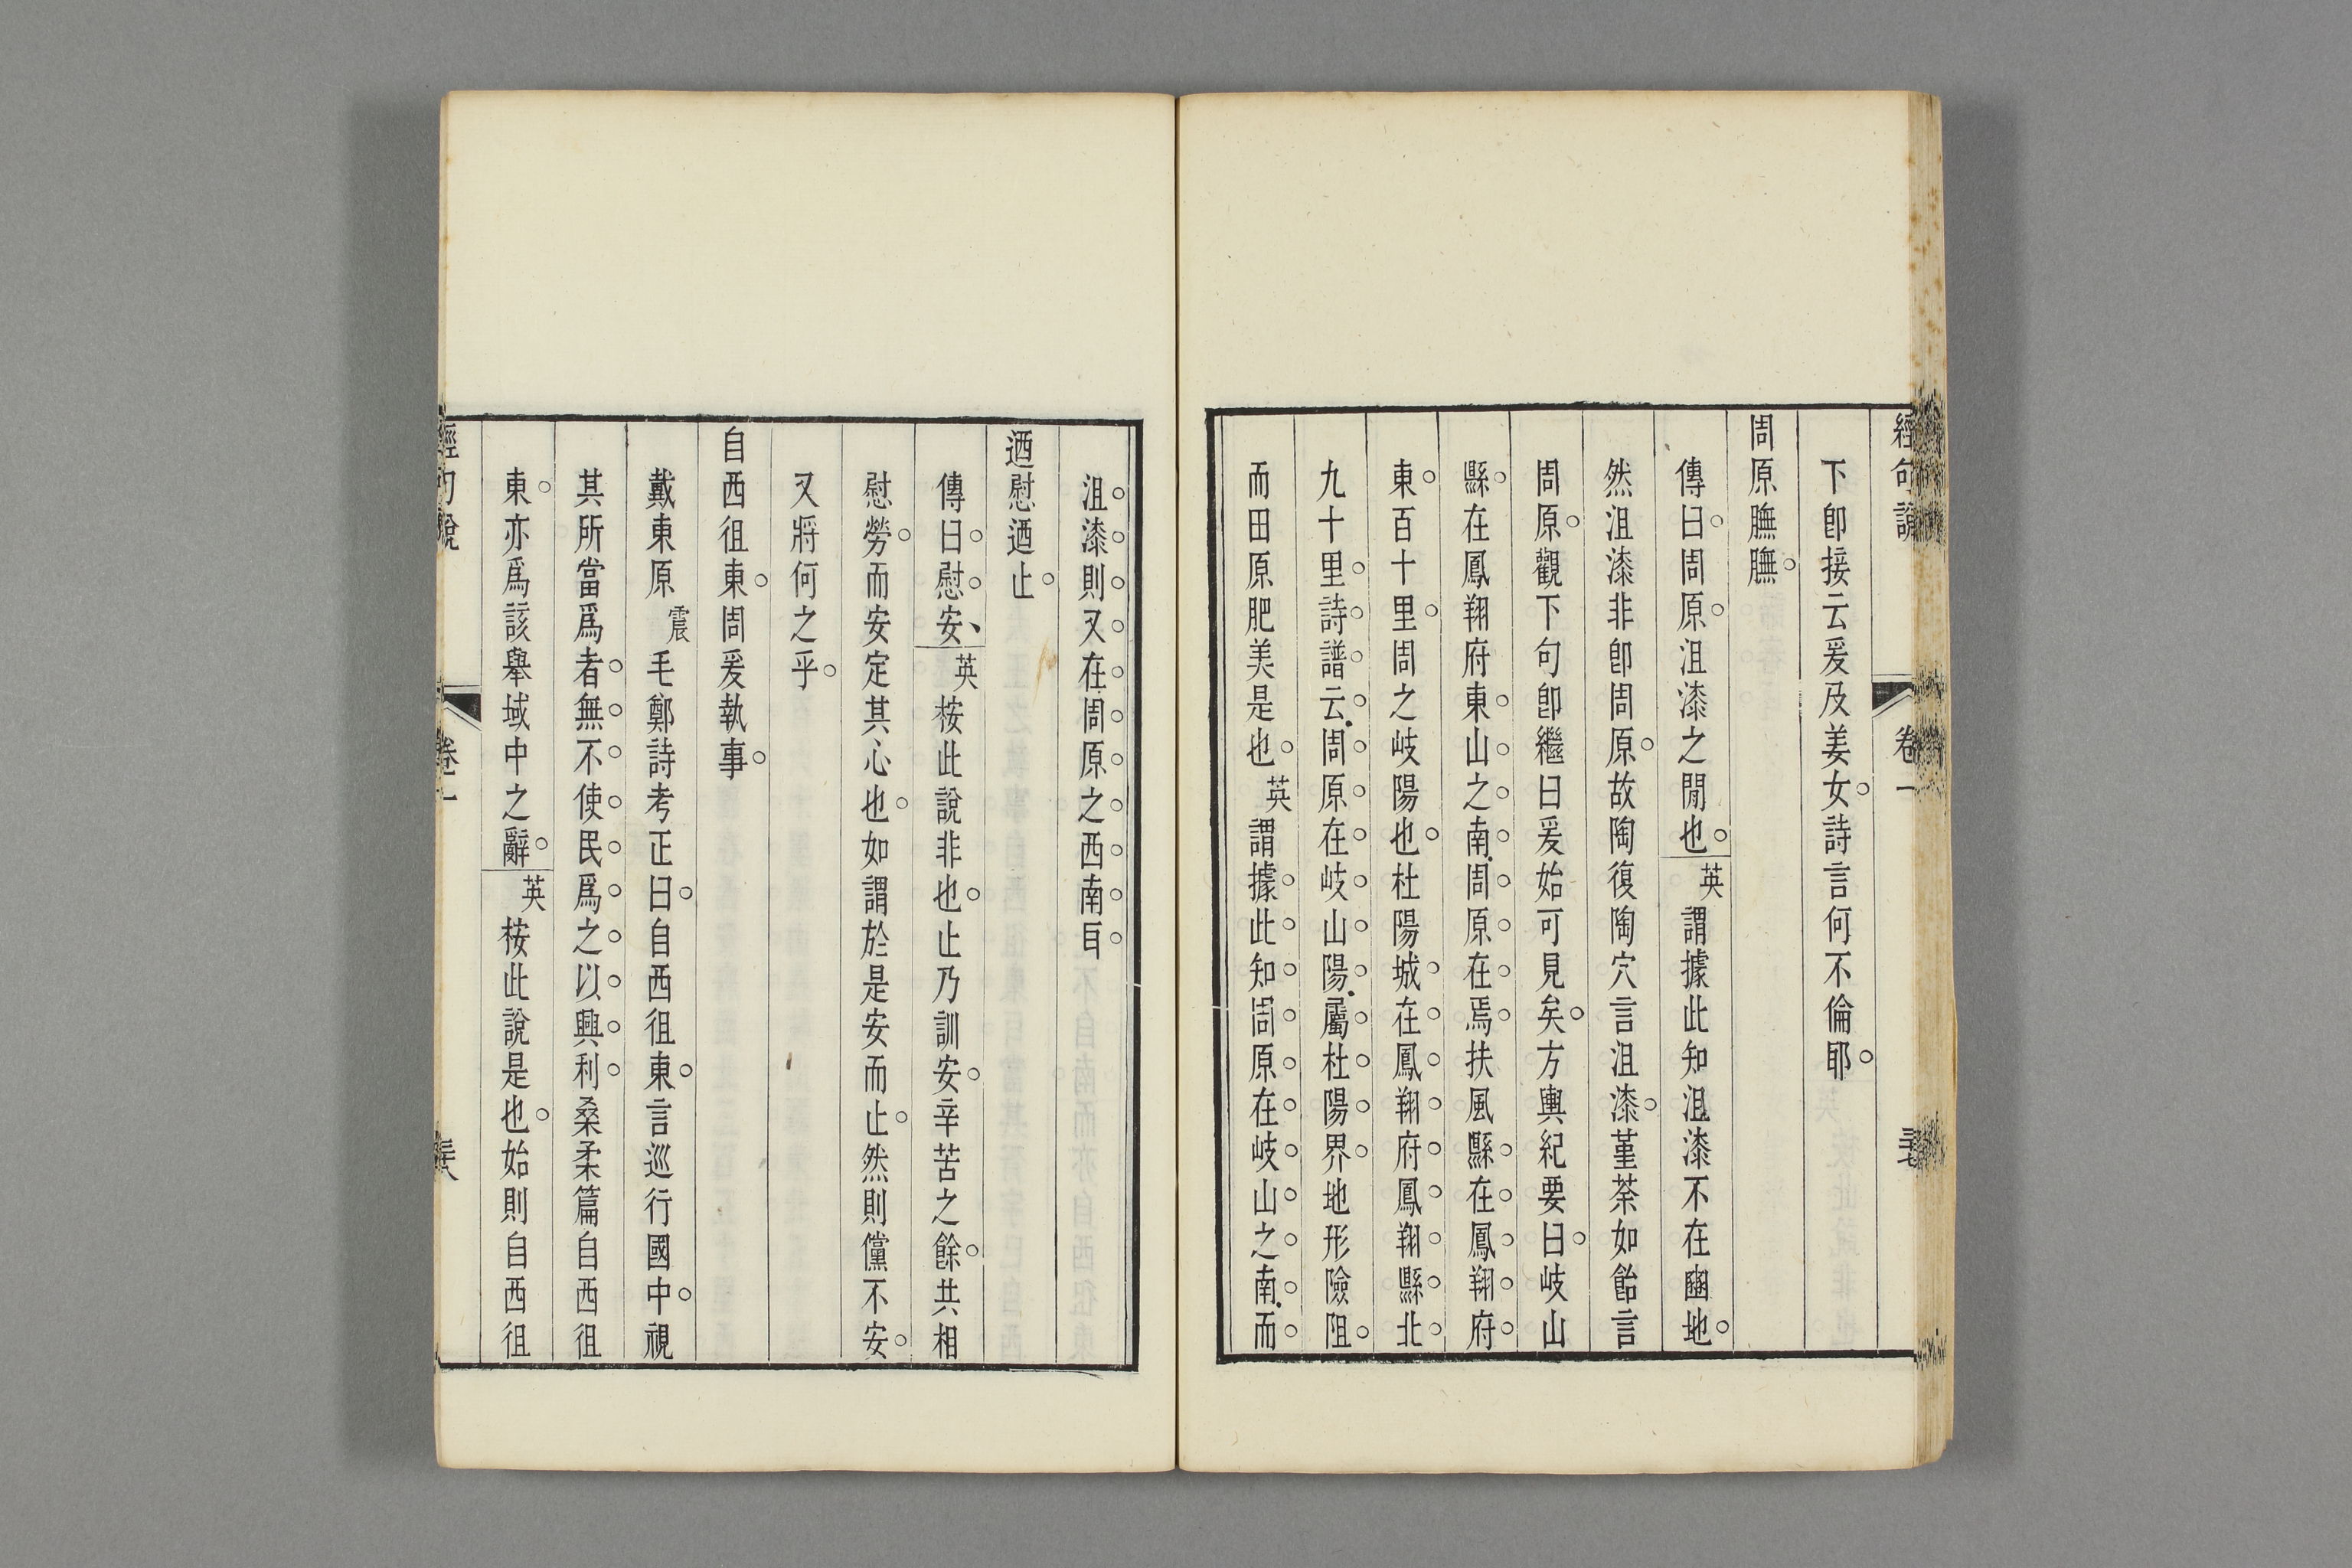 經句說 卷一
下卽接云爰及姜女詩言何不倫耶
周原膴膴
傳曰周原沮漆之閒也英謂據此知沮漆不在豳地
然沮漆非卽周原故陶復陶穴言沮漆堇荼如飴言
周原觀下句卽繼曰爰始可見矣方輿紀要曰岐山
縣在鳳翔府東山之南周原在焉扶風縣在鳳翔府
東百十里周之岐陽也杜陽城在鳳翔府鳳翔縣北
九十里詩譜云周原在岐山陽屬杜陽界地形險阻
而田原肥美是也英謂據此知周原在岐山之南而
沮漆則又在周原之西南耳
迺慰迺止
傳曰慰安英桉此說非也止乃訓安辛苦之餘共相
慰勞而安定其心也如謂於是安而止然則儻不安
又將何之乎
自西徂東周爰執事
戴東原震毛鄭詩考正曰自西徂東言巡行國中視
其所當爲者無不使民爲之以興利桑柔篇自西徂
東亦爲該舉域中之辭英桉此說是也始則自西徂
經句說 卷一